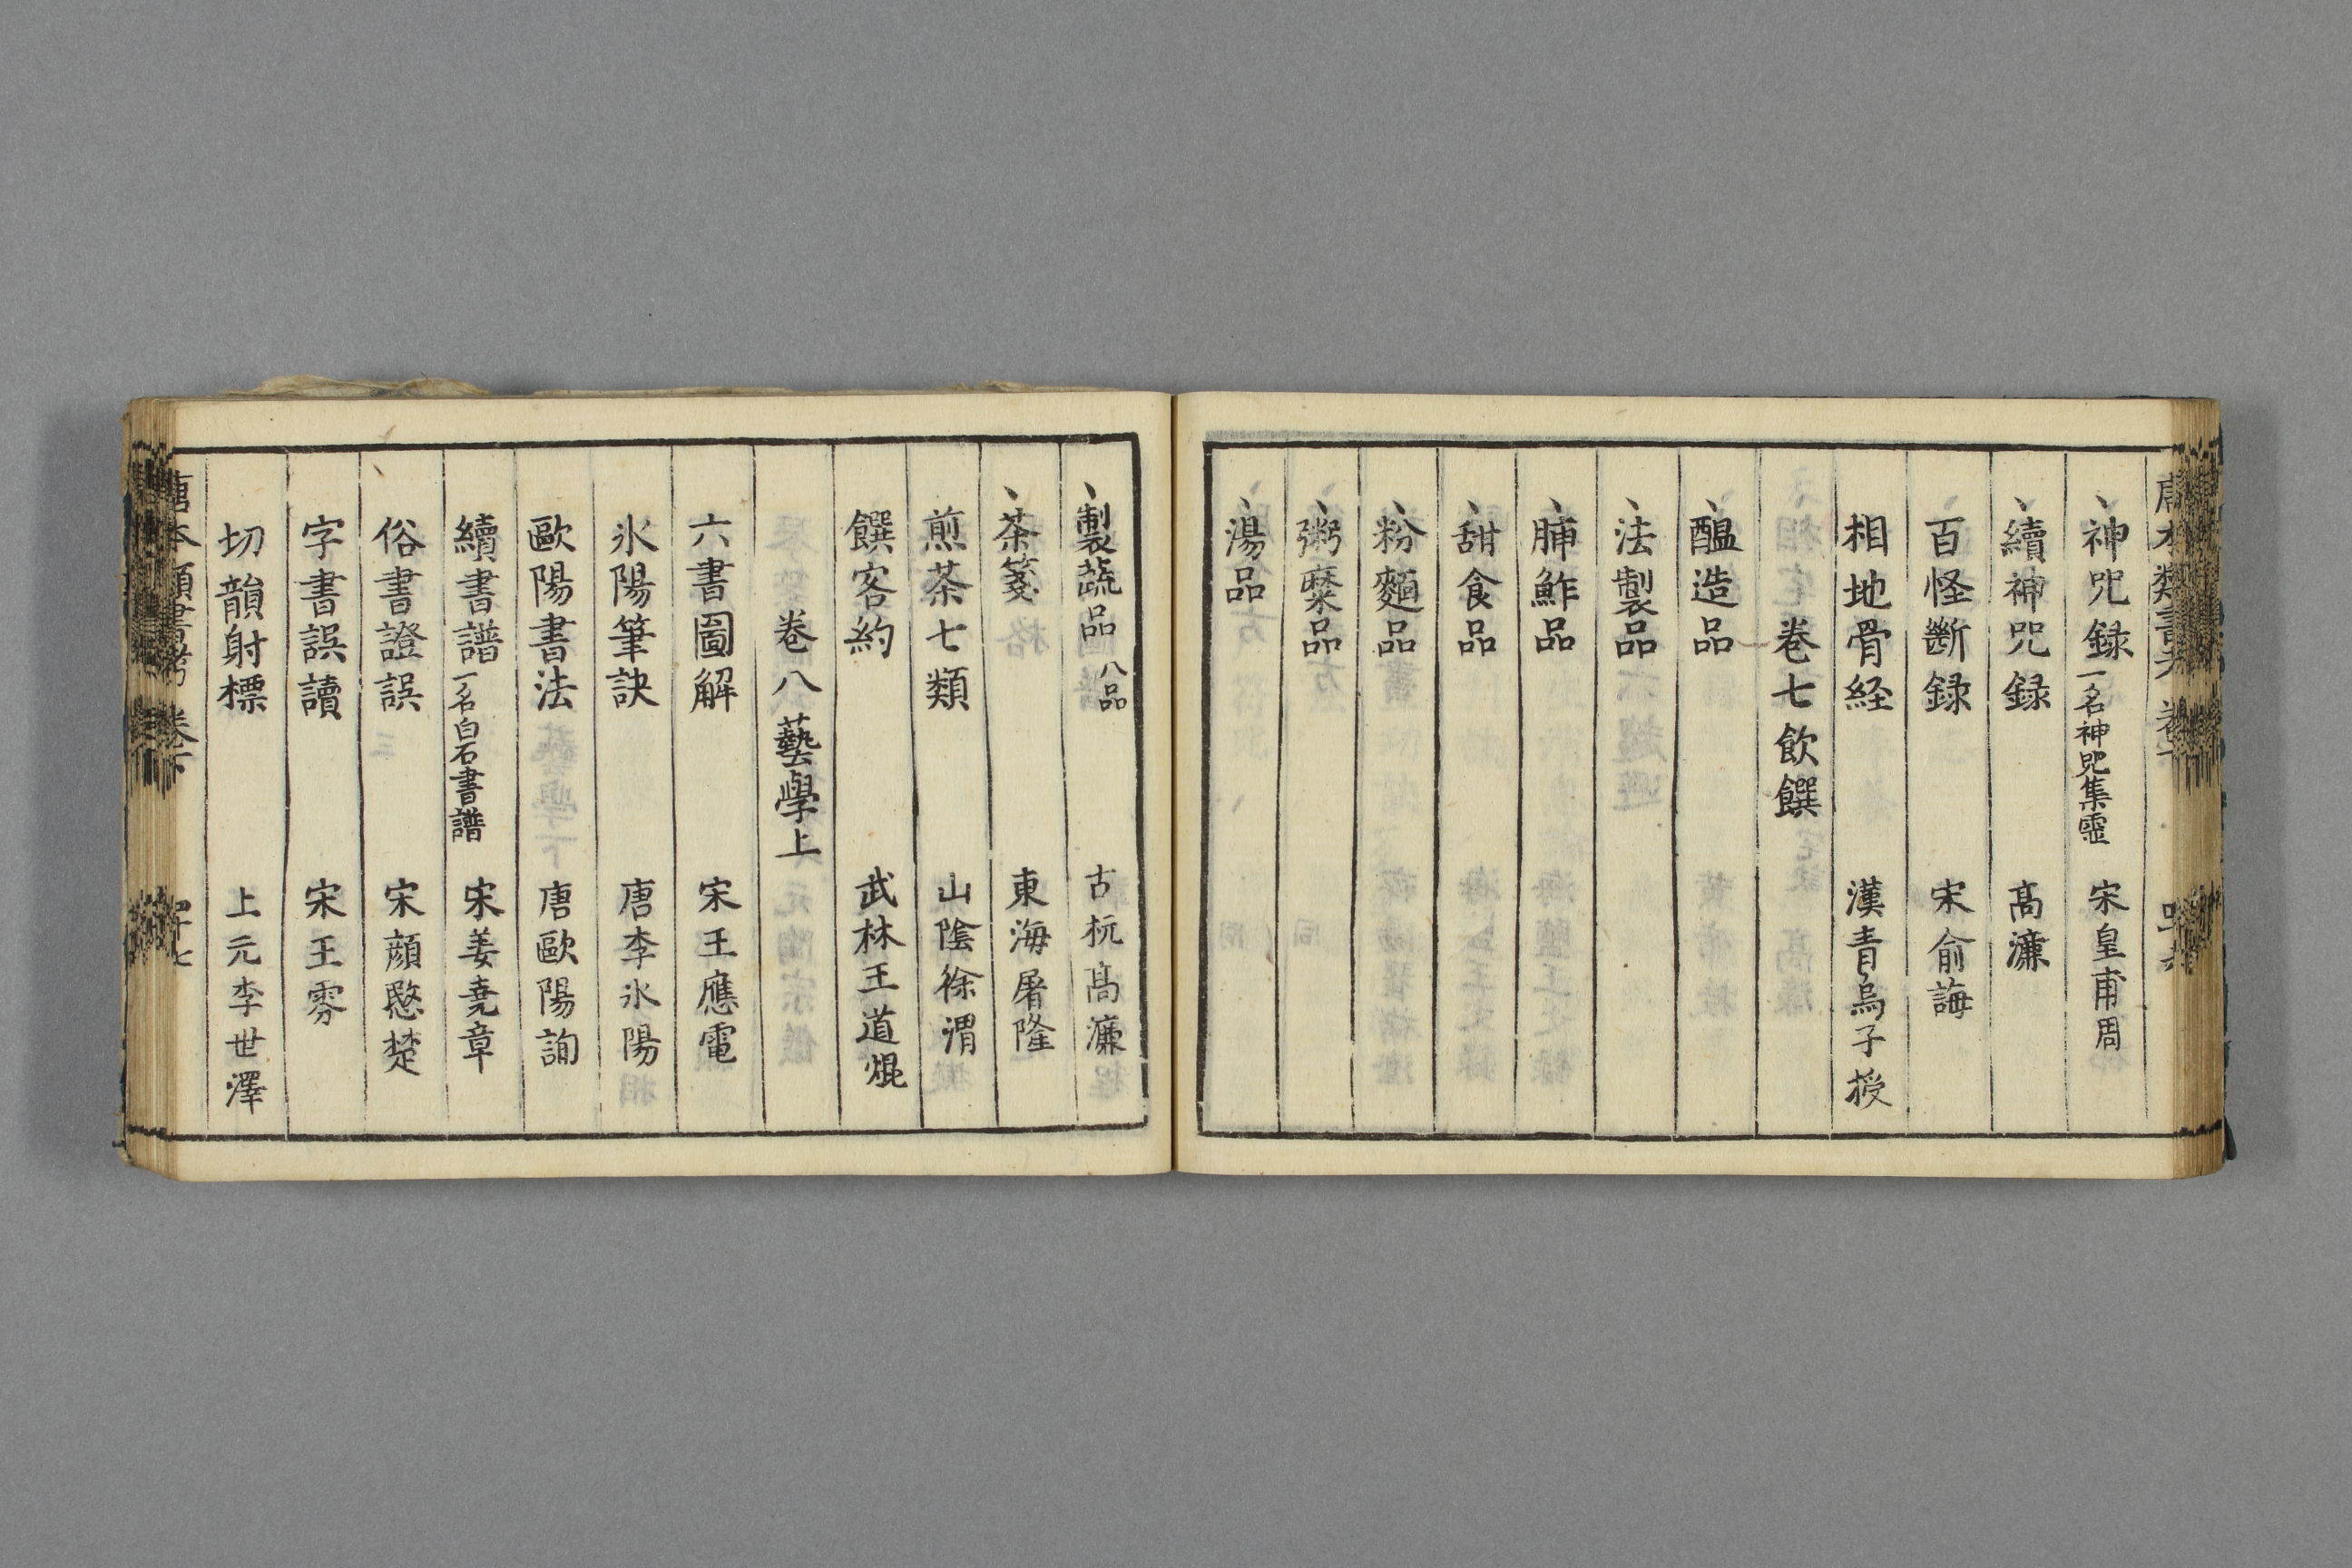 、神咒録一名神咒集靈 宋皇甫周
、續神咒録 髙濂
百怪斷録 宋俞誨
相地骨経 漢青烏子授
卷七飲饌
、醞造品
、法製品
、脯鮓品
、甜食品
、粉麵品
、粥糜品
、湯品
、製蔬品八品 古杭髙濂
、茶箋 東海屠隆
煎茶七類 山陰徐渭
饌客約 武林王道焜
卷八藝學上
六書圖解 宋王應電
氷陽筆訣 唐李氷陽
歐陽書法 唐歐陽詢
續書譜一名白石書譜 宋姜堯章
俗書證誤 宋顔愍楚
字書誤讀 宋王雰
切韻射標 上元李世澤